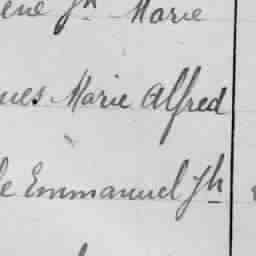 ene Jh Marie
ues Marie Alfred
le Emmanuel Jh